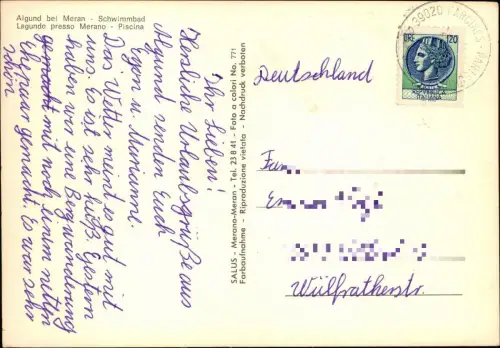 Algund bei Meran - Schwimmbad
Lagundo presso Merano - Piscina
Ihr Lieben!
Herzliche Urlaubsgrüße aus
Algund senden Euch
Egon u. Marianne.
Das Wetter meint es gut mit
uns. Es ist sehr heiß. Gestern
haben wir eine Bergwanderung
gemacht mit noch einem netten
Ehepaar gemacht. Es war sehr
schön
SALUS - Merano-Meran - Tel. 23 8 41 - Foto a colori No. 771
Farbaufnahme - Riproduzione vietata - Nachdruck verboten
39020
LIRE 120
Deutschland
Fam
Wülfratherstr.